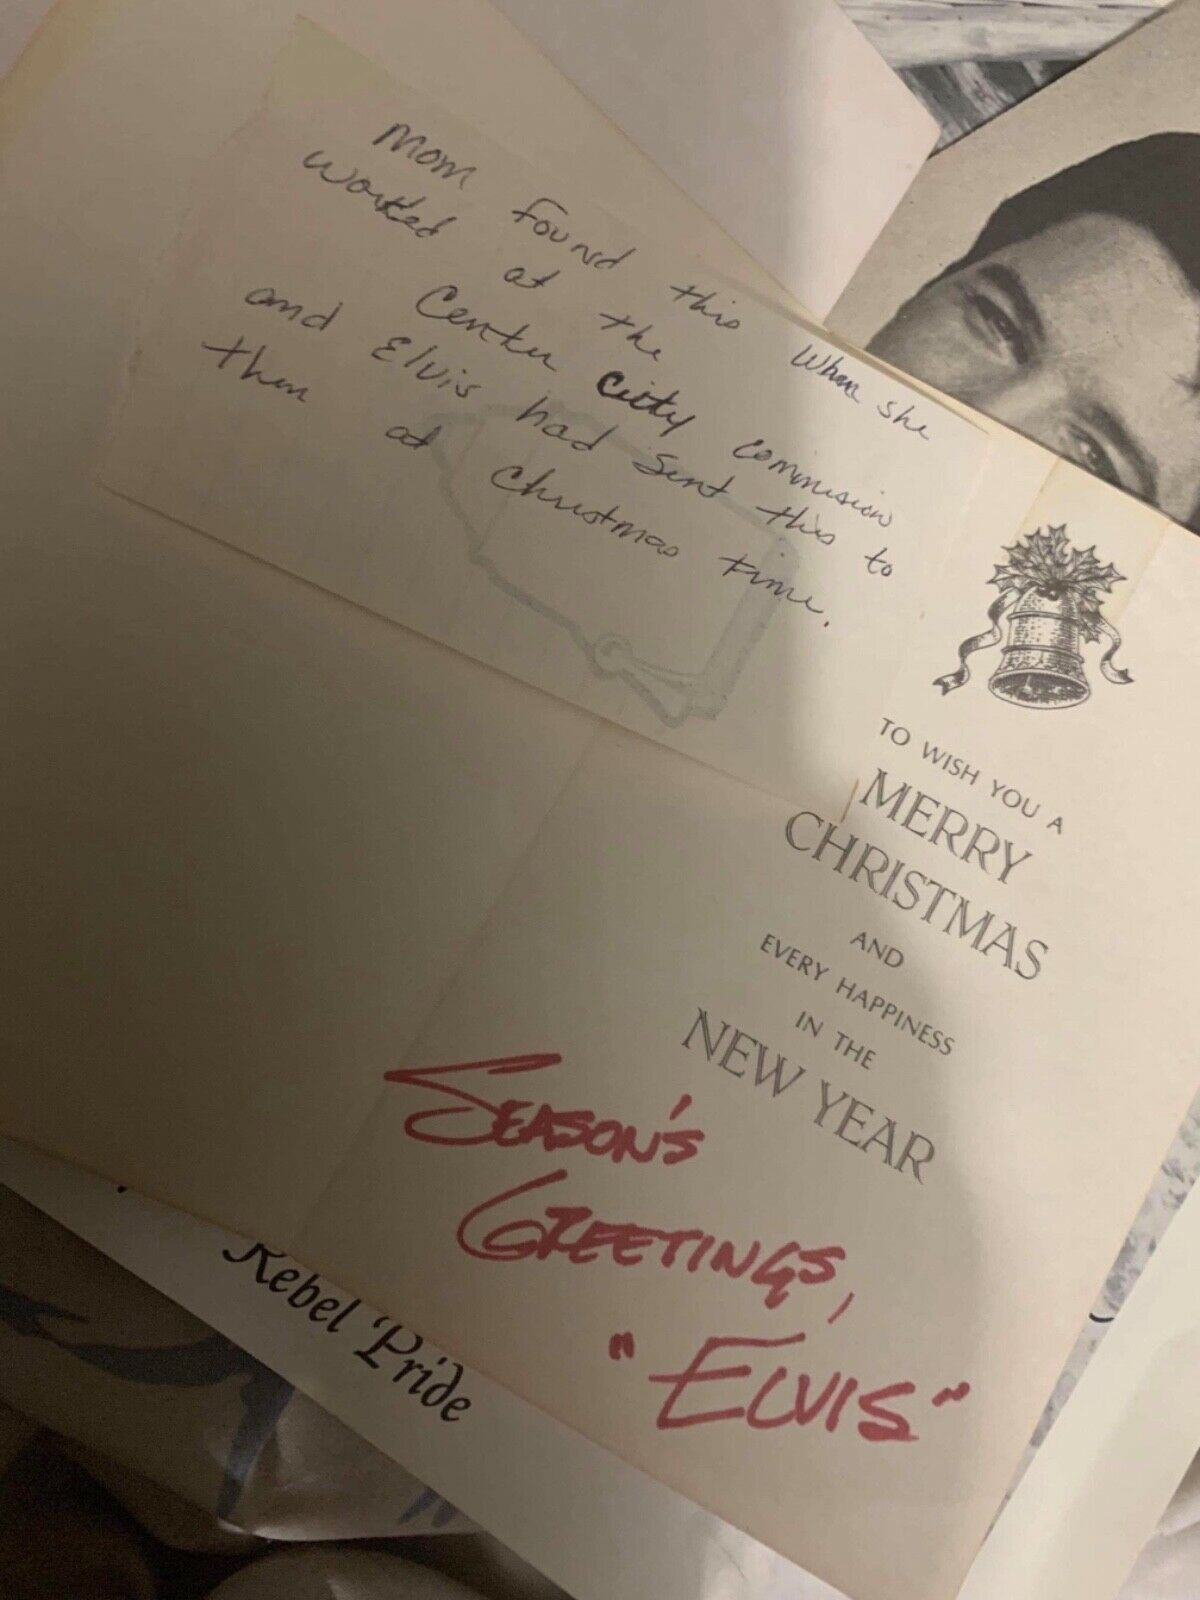 Mom Found this when she
worked at the
Center City Commision
and Elvis had sent this to
them at Christmas time.
TO WISH YOU A
MERRY
CHRISTMAS
AND
EVERY HAPPINESS
IN THE
NEW YEAR
SEASON'S
GREETINGS,
"ELVIS"
Rebel Pride